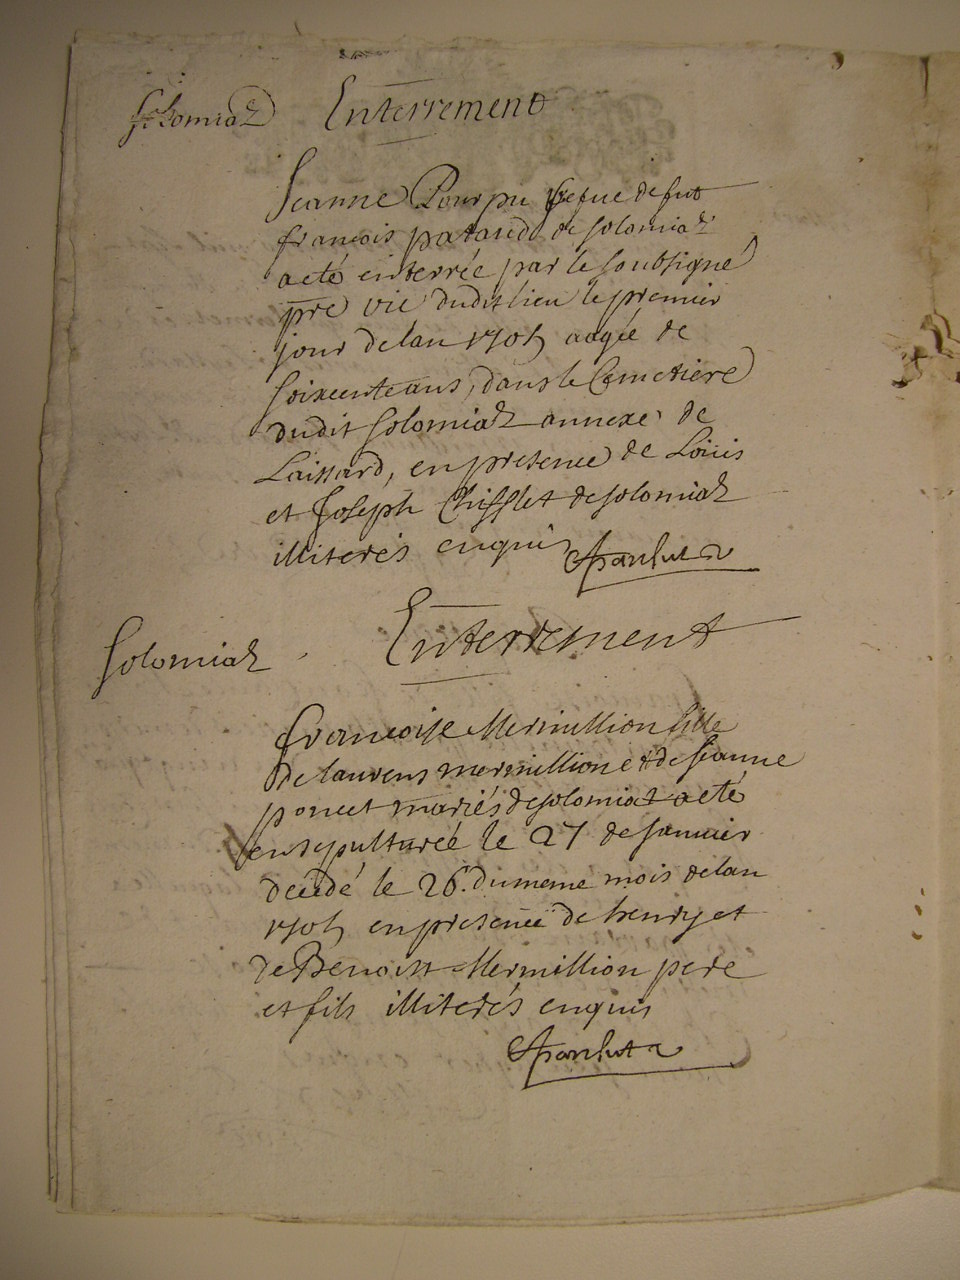 Solomiaz Enterrement
Jeanne Pourpu vefue de fut
françois pataudt de solomiaz
a eté enterrée par le soubsigné
pre vic dudit lieu le premier
jour de lan aagée de
soixcente ans, dans le Cemetiere
dudit solomiaz annexe de
Laissard, en presence de Loüis
et Joseph Chifflet de solomiaz
illiterés enquis
Solomiaz Enterrement
françoise Mermillion fille
de laurens mermillion et de Jeanne
poncet mariés de solomiaz a eté
ensepulturéé le 27 de Januier
decédé le 26. du meme mois de lan
en presence de henry et
de Benoist Mermillion pere
et fils illiterés enquis